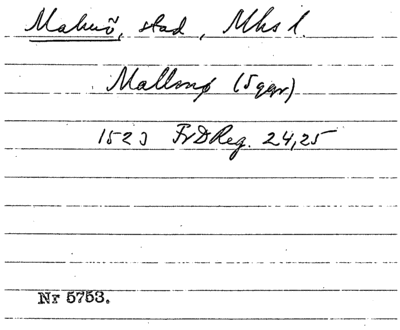 Malmö, stad, Mhs l.
Mallmø (5 ggr)
1523 FrDReg. 24,25
Nr 5753.